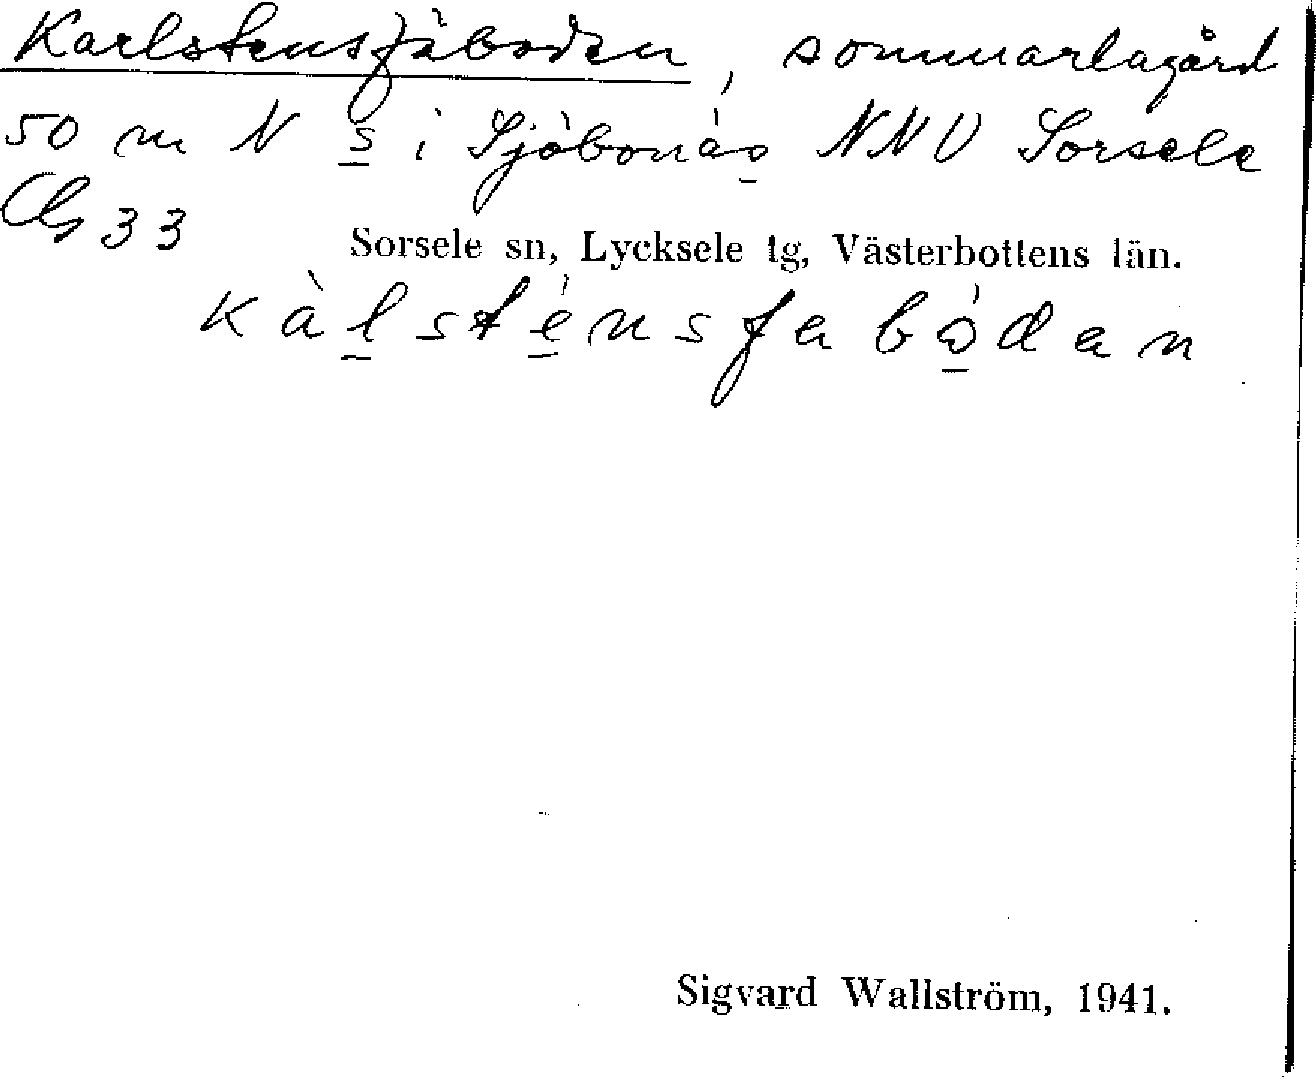 Karlstensfäboden, sommarlagård
50 m N s i Sjöbonäs NNV Sorsele
33
Sorsele sn, Lycksele lg, Västerbottens län.
kàlsténsfabódan
Sigvard Wallström, 1941.